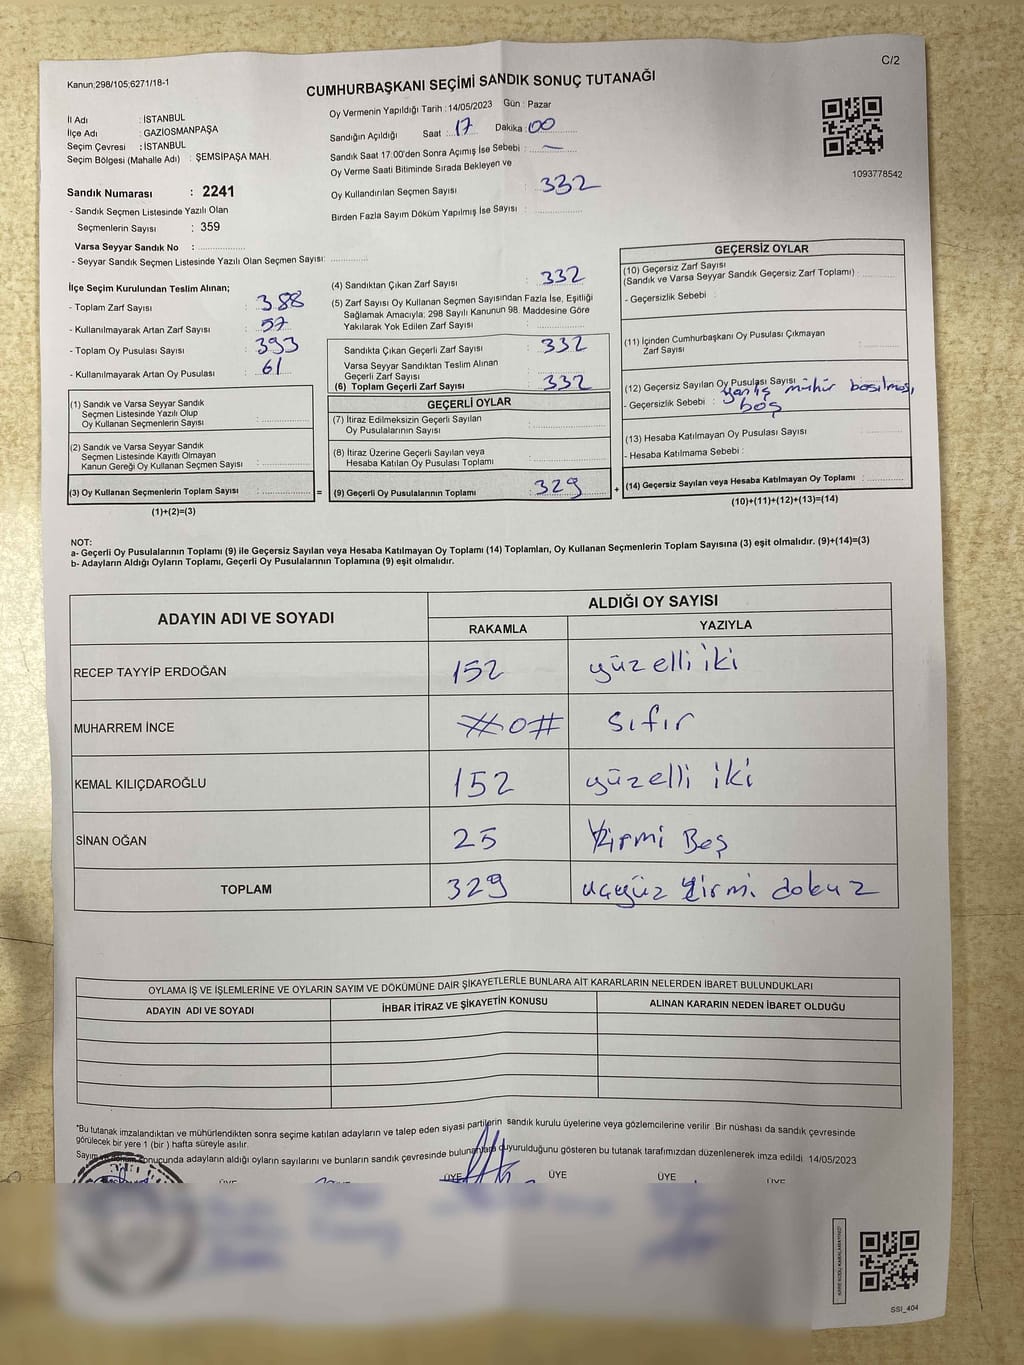 Kanun;298/105;6271/18-1
C/2
CUMHURBAŞKANI SEÇİMİ SANDIK SONUÇ TUTANAĞI
İl Adı : İSTANBUL
İlçe Adı : GAZİOSMANPAŞA
Seçim Çevresi : İSTANBUL
Seçim Bölgesi (Mahalle Adı) : ŞEMSİPAŞA MAH.
Sandık Numarası : 2241
- Sandık Seçmen Listesinde Yazılı Olan
Seçmenlerin Sayısı : 359
Varsa Seyyar Sandık No :
- Seyyar Sandık Seçmen Listesinde Yazılı Olan Seçmen Sayısı:
Oy Vermenin Yapıldığı Tarih : 14/05/2023 Gün : Pazar
Sandığın Açıldığı Saat : 17 Dakika : 00
Sandık Saat 17:00'den Sonra Açımış İse Sebebi : —
Oy Verme Saati Bitiminde Sırada Bekleyen ve
Oy Kullandırılan Seçmen Sayısı : 332
Birden Fazla Sayım Döküm Yapılmış İse Sayısı :
1093778542
İlçe Seçim Kurulundan Teslim Alınan;
- Toplam Zarf Sayısı : 388
- Kullanılmayarak Artan Zarf Sayısı : 57
- Toplam Oy Pusulası Sayısı : 393
- Kullanılmayarak Artan Oy Pusulası : 61
(1) Sandık ve Varsa Seyyar Sandık
Seçmen Listesinde Yazılı Olup
Oy Kullanan Seçmenlerin Sayısı :
(2) Sandık ve Varsa Seyyar Sandık
Seçmen Listesinde Kayıtlı Olmayan
Kanun Gereği Oy Kullanan Seçmen Sayısı :
(3) Oy Kullanan Seçmenlerin Toplam Sayısı : =
(1)+(2)=(3)
(4) Sandıktan Çıkan Zarf Sayısı : 332
(5) Zarf Sayısı Oy Kullanan Seçmen Sayısından Fazla İse, Eşitliği
Sağlamak Amacıyla; 298 Sayılı Kanunun 98. Maddesine Göre
Yakılarak Yok Edilen Zarf Sayısı :
Sandıkta Çıkan Geçerli Zarf Sayısı : 332
Varsa Seyyar Sandıktan Teslim Alınan
Geçerli Zarf Sayısı :
(6) Toplam Geçerli Zarf Sayısı : 332
GEÇERLİ OYLAR
(7) İtiraz Edilmeksizin Geçerli Sayılan
Oy Pusulalarının Sayısı :
(8) İtiraz Üzerine Geçerli Sayılan veya
Hesaba Katılan Oy Pusulası Toplamı :
(9) Geçerli Oy Pusulalarının Toplamı : 329 +
GEÇERSİZ OYLAR
(10) Geçersiz Zarf Sayısı
(Sandık ve Varsa Seyyar Sandık Geçersiz Zarf Toplamı) :
- Geçersizlik Sebebi :
(11) İçinden Cumhurbaşkanı Oy Pusulası Çıkmayan
Zarf Sayısı :
(12) Geçersiz Sayılan Oy Pusulası Sayısı :
yanlış mühür basılması,
- Geçersizlik Sebebi : boş
(13) Hesaba Katılmayan Oy Pusulası Sayısı :
- Hesaba Katılmama Sebebi :
(14) Geçersiz Sayılan veya Hesaba Katılmayan Oy Toplamı :
(10)+(11)+(12)+(13)=(14)
NOT:
a- Geçerli Oy Pusulalarının Toplamı (9) ile Geçersiz Sayılan veya Hesaba Katılmayan Oy Toplamı (14) Toplamları, Oy Kullanan Seçmenlerin Toplam Sayısına (3) eşit olmalıdır. (9)+(14)=(3)
b- Adayların Aldığı Oyların Toplamı, Geçerli Oy Pusulalarının Toplamına (9) eşit olmalıdır.
ADAYIN ADI VE SOYADI
ALDIĞI OY SAYISI
RAKAMLA YAZIYLA
RECEP TAYYİP ERDOĞAN 152 yüzelli iki
MUHARREM İNCE #0# sıfır
KEMAL KILIÇDAROĞLU 152 yüzelli iki
SİNAN OĞAN 25 Yirmi Beş
TOPLAM 329 üçyüz Yirmi dokuz
OYLAMA İŞ VE İŞLEMLERİNE VE OYLARIN SAYIM VE DÖKÜMÜNE DAİR ŞİKAYETLERLE BUNLARA AİT KARARLARIN NELERDEN İBARET BULUNDUKLARI
ADAYIN ADI VE SOYADI İHBAR İTİRAZ VE ŞİKAYETİN KONUSU ALINAN KARARIN NEDEN İBARET OLDUĞU
"Bu tutanak imzalandıktan ve mühürlendikten sonra seçime katılan adayların ve talep eden siyasi partilerin sandık kurulu üyelerine veya gözlemcilerine verilir. Bir nüshası da sandık çevresinde
görülecek bir yere 1 (bir) hafta süreyle asılır.
Sayım sonucunda adayların aldığı oyların sayılarını ve bunların sandık çevresinde bulunanlara duyurulduğunu gösteren bu tutanak tarafımızdan düzenlenerek imza edildi 14/05/2023
ÜYE ÜYE ÜYE ÜYE ÜYE
SSİ_404